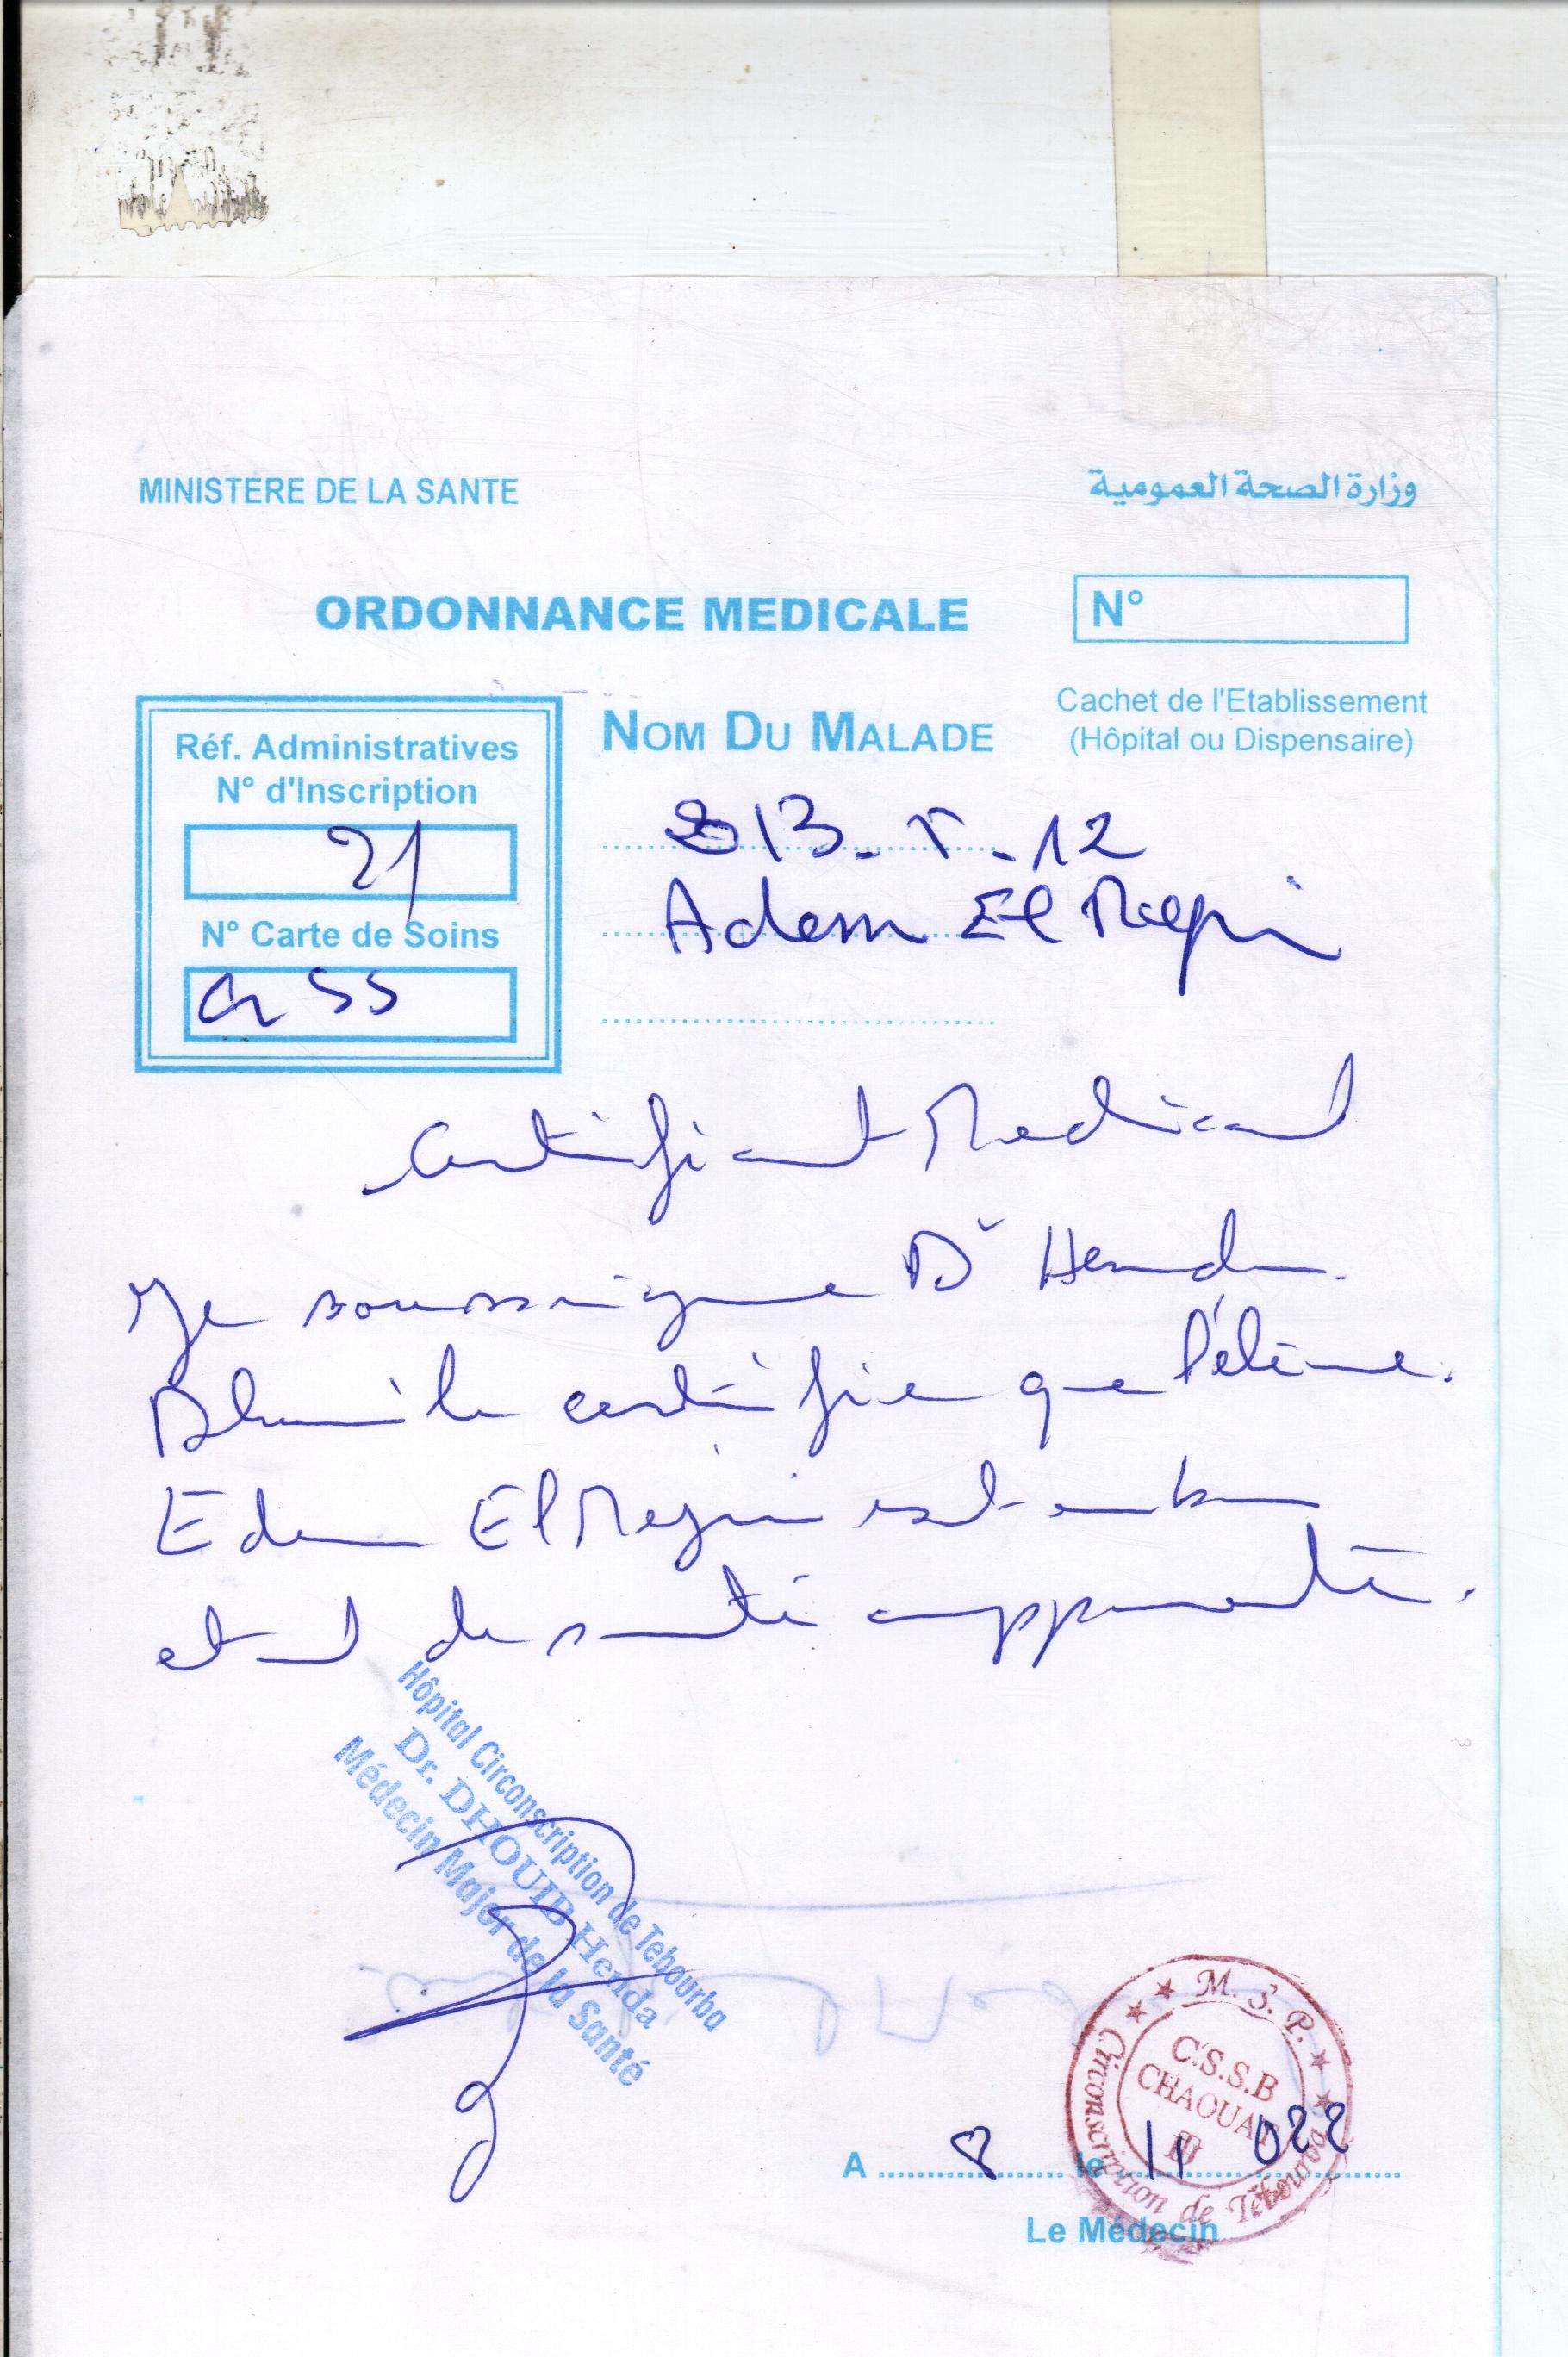 MINISTERE DE LA SANTE
وزارة الصحة العمومية
ORDONNANCE MEDICALE
N°
Cachet de l'Etablissement
(Hôpital ou Dispensaire)
Réf. Administratives
N° d'Inscription
21
N° Carte de Soins
NOM DU MALADE
12
Adem El
Medical
Je soussigne Dr Henda
certifie que l'élève
El est en bon
etat de santé
Hôpital Circonscription de Tebourba
Dr. DHOUIB Henda
Médecin Major de la Santé
M. S. P.
C.S.S.B
CHAOUAT
Circonscription de Tebourba
A 8 le 11 022
Le Médecin